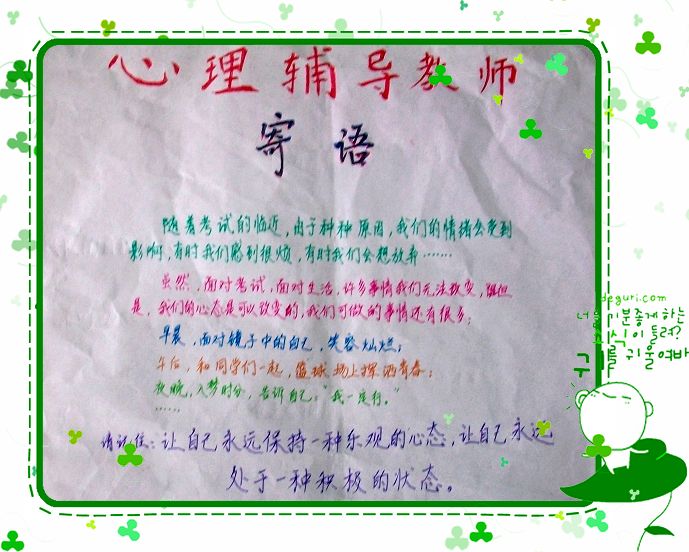 心理辅导教师
寄语
随着考试的临近,由于种种原因,我们的情绪会受到
影响,有时我们感到很烦,有时我们会想放弃……
虽然,面对考试,面对生活,许多事情我们无法改变,但
是,我们的心态是可以改变的,我们可做的事情还有很多:
早晨,面对镜子中的自己,笑容灿烂;
午后,和同学们一起,篮球场上挥洒青春;
夜晚,入梦时分,告诉自己:“我一定行。”
……
请记住:让自己永远保持一种乐观的心态,让自己永远
处于一种积极的状态。
deguri.com
너를 기분좋게 하는
소식이 들려?
귀를 귀울여봐